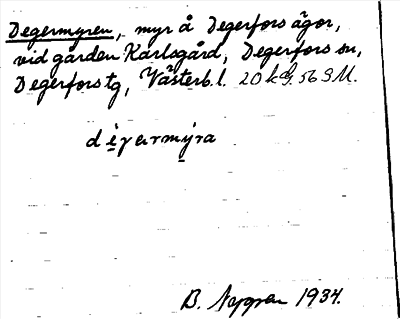 Degermyren, myr å Degerfors ägor,
vid gården Karlsgård, Degerfors sn,
Degerfors tg, Västerb. l. 20 k S. 56 S M.
degermyra
B. Nygren 1934.